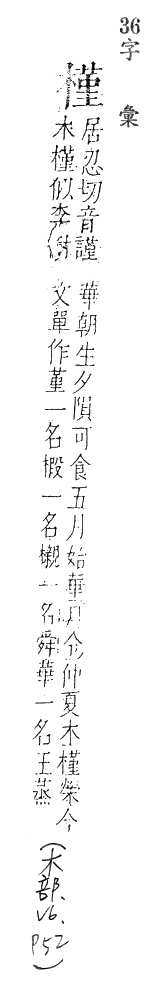 36字彙
槿
居忍切音謹
木槿似李樹
華朝生夕隕可食五月始華月令仲夏木槿榮今
文單作堇一名椴一名櫬一名舜華一名王蒸
(木部. V6. P52)